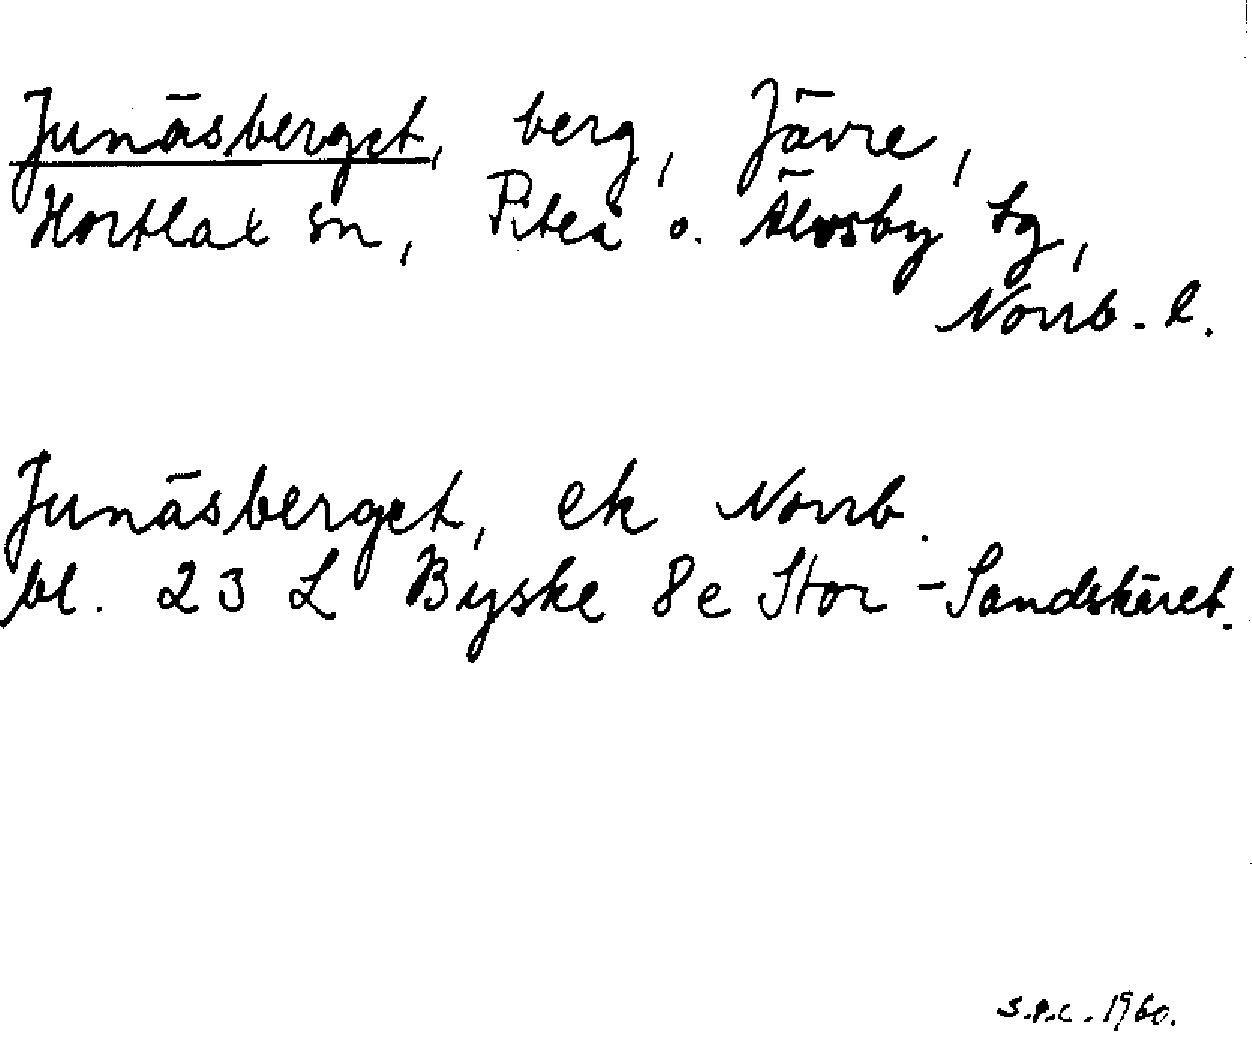 Junäsberget, berg, Jävre,
Hortlax sn, Piteå o. Älvsby tg,
Norrb. l.
Junäsberget, ek Norrb.
bl. 23 L Byske 8e Stor-Sandskäret.
S.P.C. 1960.